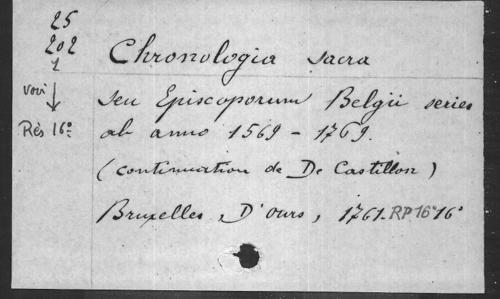 25
202
1
voir
Rés 16º
Chronologia sacra
seu Episcoporum Belgii series
ab anno 1569 - 1769.
(continuation de De Castillon)
Bruxelles, D'ours, 1761. RP 16º 16º